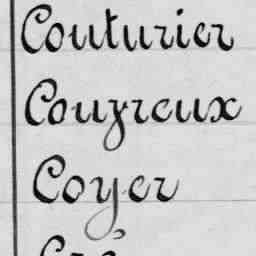 Couturier
Couyreux
Coyer